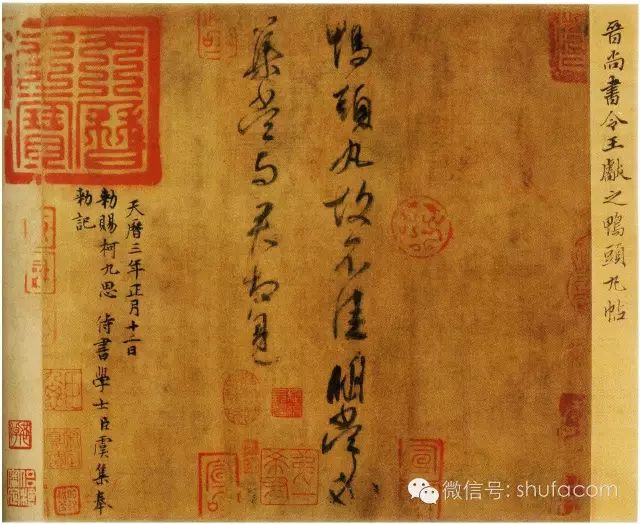 晉尚書令王獻之鴨頭丸帖
鴨頭丸故不佳明當必
集當與君相見
天曆三年正月十二日
勑賜柯九思 侍書學士臣虞集奉
勑記
天曆之寶
微信号: shufacom